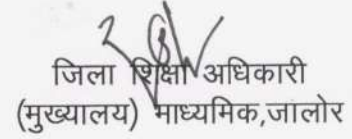 जिला शिक्षा अधिकारी
(मुख्यालय) माध्यमिक,जालोर